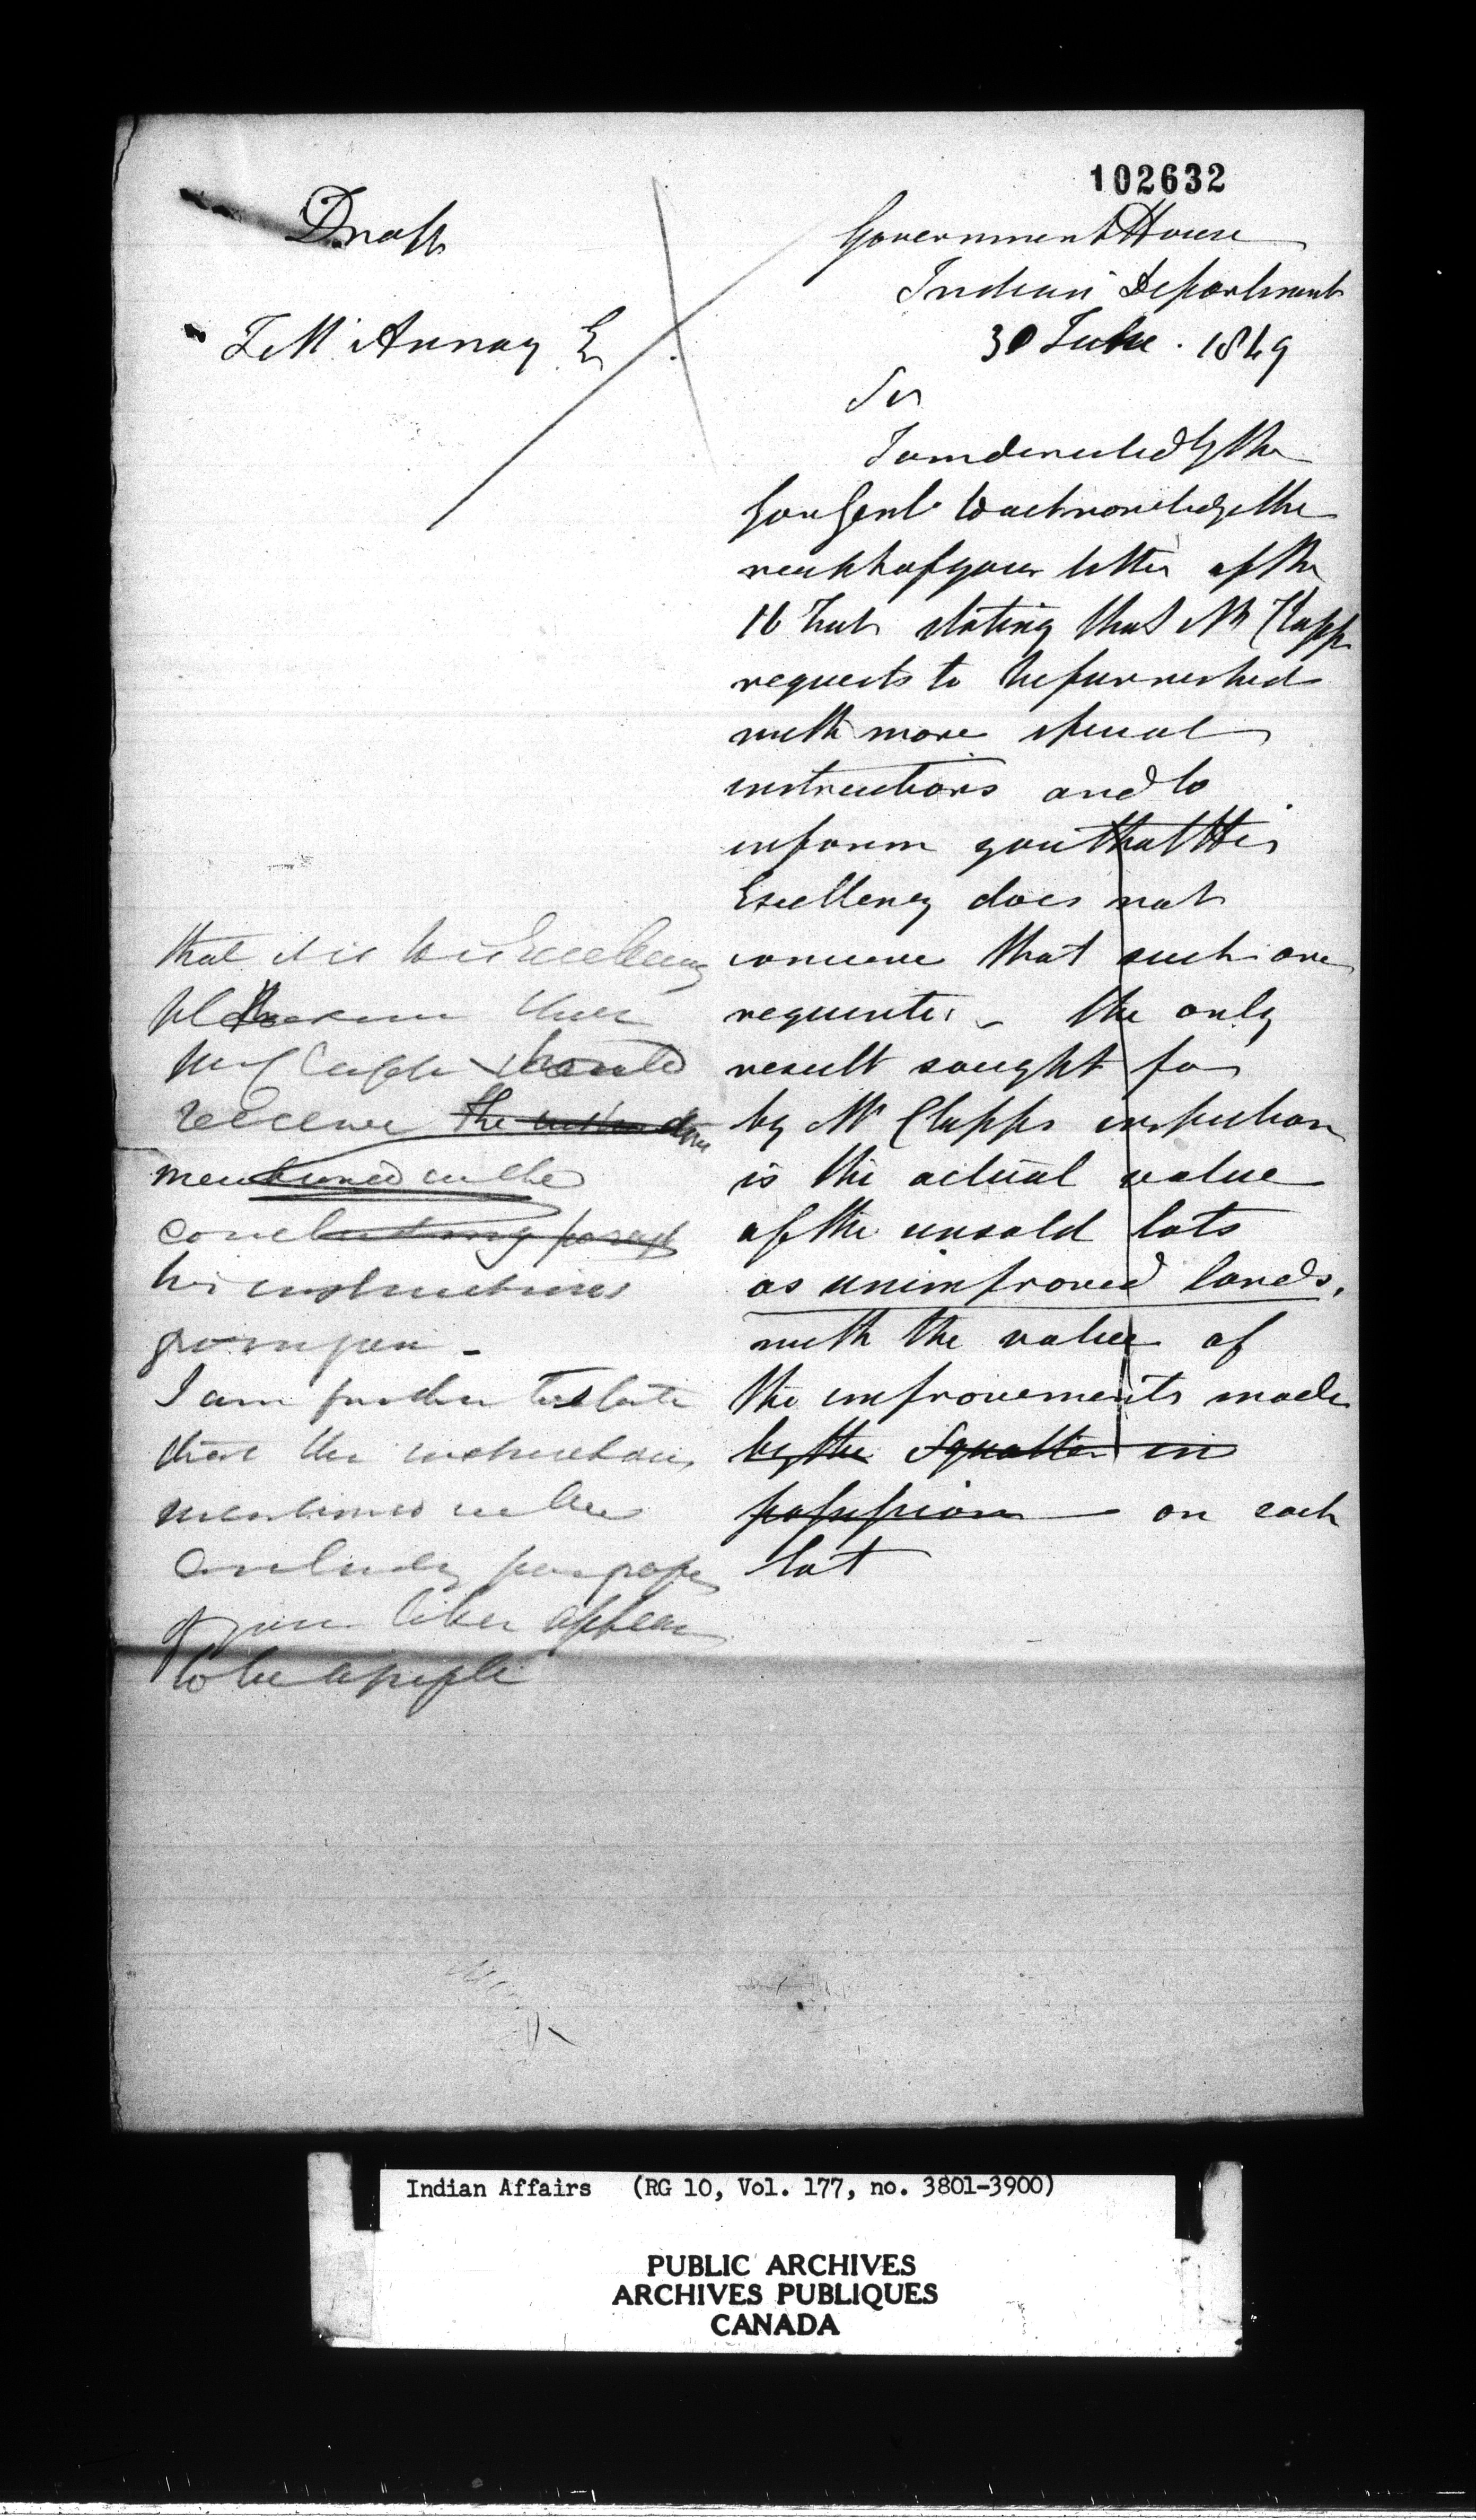 102632
Draft
T McAnnay E
Government House
Indian Department
30 June. 1849
Sir
I am directed by the
Gov Genl to acknowledge the
receipt of your letter of the
16 Inst stating that Mr Clapp
requests to be furnished
with more special
instructions and to
inform you that His
Excellency does not
conceive that such are
requisite, - the only
result sought for
by Mr Clapps inspection
is the actual value
of the unsold lots
as unimproved lands,
with the value of
the improvements made
by the Squatter in
possession on each
lot
that it is his Excellency
pleasure that
Mr Clapp should
receive the instructions
mentioned in the
concluding parag
his instructions
from you -
I am further to state
that the instructions
mentioned in the
concluding paragraph
of your letter appear
to be ample
Indian Affairs (RG 10, Vol. 177, no. 3801-3900)
PUBLIC ARCHIVES
ARCHIVES PUBLIQUES
CANADA